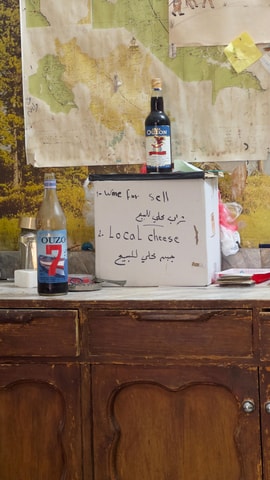 OUZON
1- Wine for sell
شراب محلي للبيع
2- Local cheese
جبنه محلي للبيع
OUZO
7